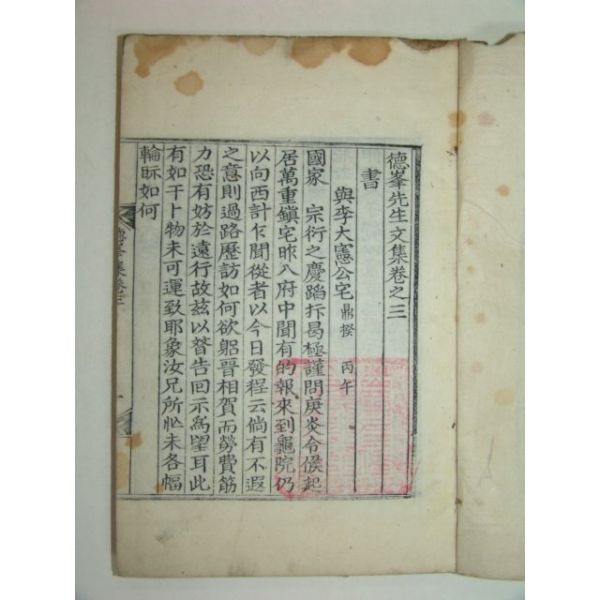 德峯先生文集卷之三
書
與李大憲公宅鼎揆 丙午
國家 宗衍之慶蹈抃曷極謹問庚炎令候起
居萬重鎭宅昨入府中聞有的報來到龜院仍
以向西計乍聞從者以今日發程云倘有不遐
之意則過路歷訪如何欲躬晉相賀而勞費筋
力恐有妨於遠行故玆以替告回示爲望耳此
有如干卜物未可運致耶象汝兄所忙未各幅
輪眎如何